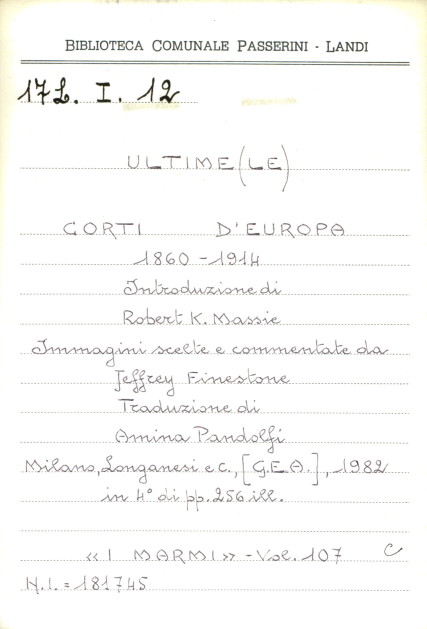 BIBLIOTECA COMUNALE PASSERINI - LANDI
17L. I. 12
ULTIME (LE)
CORTI D'EUROPA
1860 - 1914
Introduzione di
Robert K. Massie
Immagini scelte e commentate da
Jeffrey Finestone
Traduzione di
Amina Pandolfi
Milano, Longanesi e C., [G.E.A.], 1982
in 4° di pp. 256 ill.
« I MARMI » - Vol. 107 C
N.I. = 181745